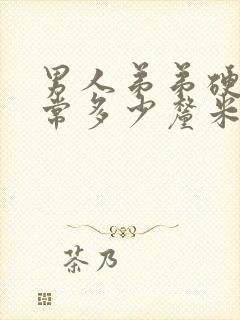 男人弟弟硬
常多少厘米
茶乃